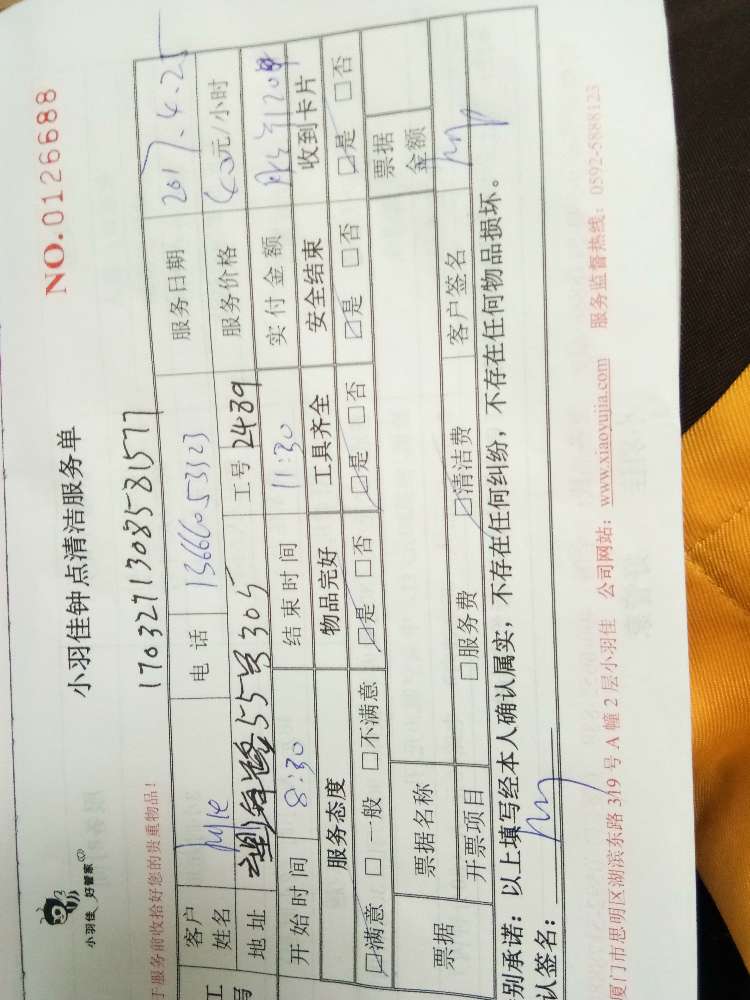 小羽佳 好管家
小羽佳钟点清洁服务单
NO.0126688
17032713085815 77
于服务前收拾好您的贵重物品!
客户姓名 电话 13666053323 服务日期 2017.4.25
地址 55号305 工号 2489 服务价格 40元/小时
开始时间 8:30 结束时间 11:30 实付金额
服务态度 物品完好 工具齐全 安全结束 收到卡片
☑满意 □一般 □不满意 ☑是 □否 ☑是 □否 ☑是 □否 ☑是 □否
票据 票据名称 票据金额
开票项目 □服务费 ☑清洁费 客户签名
别承诺:以上填写经本人确认属实,不存在任何纠纷,不存在任何物品损坏。
认签名:
厦门市思明区湖滨东路 319 号 A 幢 2 层小羽佳 公司网站:www.xiaoyujia.com 服务监督热线:0592-5888123